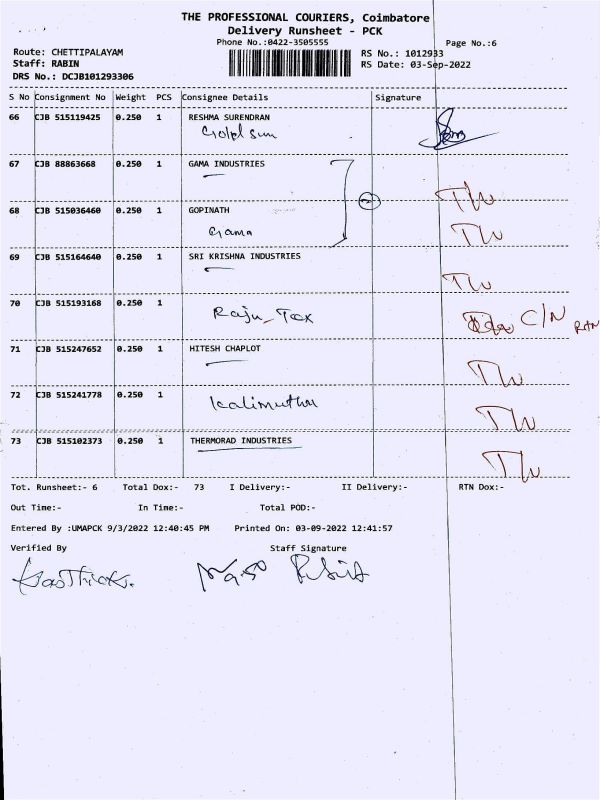 THE PROFESSIONAL COURIERS, Coimbatore
Delivery Runsheet - PCK
Phone No.:0422-3505555
Page No.:6
Route: CHETTIPALAYAM
RS No.: 1012933
Staff: RABIN
RS Date: 03-Sep-2022
DRS No.: DCJB101293306
S No Consignment No Weight PCS Consignee Details Signature
66 CJB 515119425 0.250 1 RESHMA SURENDRAN
67 CJB 88863668 0.250 1 GAMA INDUSTRIES
2
68 CJB 515036460 0.250 1 GOPINATH
Gama
69 CJB 515164640 0.250 1 SRI KRISHNA INDUSTRIES
70 CJB 515193168 0.250 1
Raju Tex
C/N
71 CJB 515247652 0.250 1 HITESH CHAPLOT
72 CJB 515241778 0.250 1
Kalimuthu
73 CJB 515102373 0.250 1 THERMORAD INDUSTRIES
Tot. Runsheet:- 6 Total Dox:- 73 I Delivery:- II Delivery:- RTN Dox:-
Out Time:- In Time:- Total POD:-
Entered By :UMAPCK 9/3/2022 12:40:45 PM Printed On: 03-09-2022 12:41:57
Verified By Staff Signature